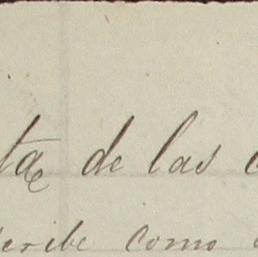 ta de las
cribe como